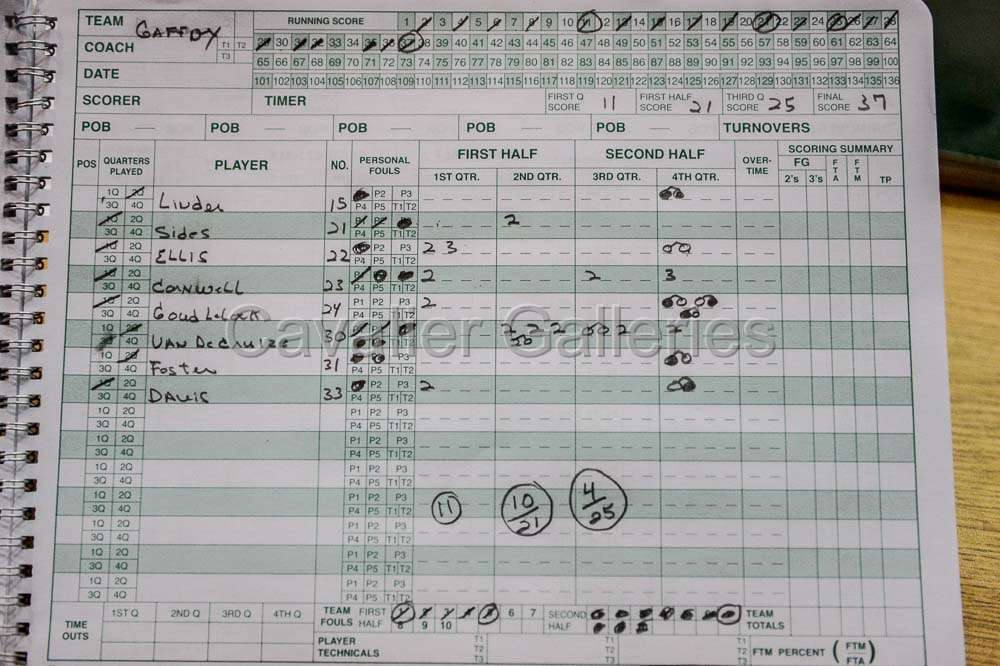 TEAM GAFFNEY RUNNING SCORE 1 2 3 4 5 6 7 8 9 10 11 12 13 14 15 16 17 18 19 20 21 22 23 24 25 26 27 28
COACH T1 T2 29 30 31 32 33 34 35 36 37 38 39 40 41 42 43 44 45 46 47 48 49 50 51 52 53 54 55 56 57 58 59 60 61 62 63 64
T3 65 66 67 68 69 70 71 72 73 74 75 76 77 78 79 80 81 82 83 84 85 86 87 88 89 90 91 92 93 94 95 96 97 98 99 100
DATE 101 102 103 104 105 106 107 108 109 110 111 112 113 114 115 116 117 118 119 120 121 122 123 124 125 126 127 128 129 130 131 132 133 134 135 136
SCORER TIMER FIRST Q SCORE 11 FIRST HALF SCORE 21 THIRD Q SCORE 25 FINAL SCORE 37
POB — POB — POB — POB — POB — TURNOVERS
POS QUARTERS PLAYED PLAYER NO. PERSONAL FOULS FIRST HALF SECOND HALF OVER-TIME SCORING SUMMARY
1ST QTR. 2ND QTR. 3RD QTR. 4TH QTR. FG 2's 3's FTA FTM TP
1Q 2Q 3Q 4Q Linder 15 P2 P3 P4 P5 T1 T2
1Q 2Q 3Q 4Q Sides 21 P4 P5 T1 T2 2
1Q 2Q 3Q 4Q ELLIS 22 P2 P3 P4 P5 T1 T2 2 3
1Q 2Q 3Q 4Q Cornwell 23 P4 P5 T1 T2 2 2 3
1Q 2Q 3Q 4Q 24 P1 P2 P3 P4 P5 T1 T2 2
1Q 2Q 30 P4 P5 T1 T2 2 2 2 2
1Q 2Q 3Q 4Q Foster 31 P3 P4 P5 T1 T2
1Q 2Q 3Q 4Q DAVIS 33 P2 P3 P4 P5 T1 T2 2
Cavalier Galleries
1Q 2Q P1 P2 P3
3Q 4Q P4 P5 T1 T2
1Q 2Q P1 P2 P3
3Q 4Q P4 P5 T1 T2
1Q 2Q P1 P2 P3
3Q 4Q P4 P5 T1 T2
1Q 2Q P1 P2 P3 11 10/21 4/25
3Q 4Q P4 P5 T1 T2
1Q 2Q P1 P2 P3
3Q 4Q P4 P5 T1 T2
1Q 2Q P1 P2 P3
3Q 4Q P4 P5 T1 T2
1Q 2Q P1 P2 P3
3Q 4Q P4 P5 T1 T2
TIME OUTS 1ST Q 2ND Q 3RD Q 4TH Q TEAM FOULS FIRST HALF 6 7 8 9 10 SECOND HALF TEAM TOTALS
PLAYER TECHNICALS T1 T2 T3 T1 T2 T3 T1 T2 T3 FTM PERCENT (FTM/FTA)